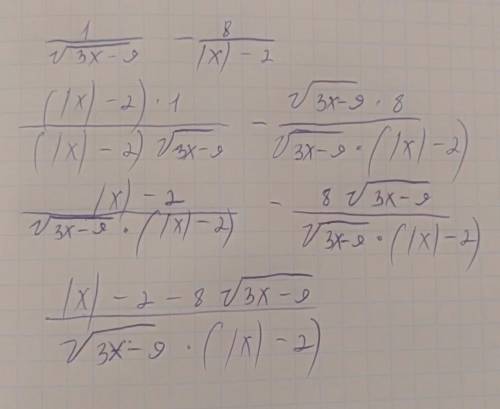 1/√(3x-9) - 8/(|x|-2)
((|x|-2)·1)/((|x|-2)√(3x-9)) - (√(3x-9)·8)/(√(3x-9)·(|x|-2))
(|x|-2)/(√(3x-9)·(|x|-2)) - (8√(3x-9))/(√(3x-9)·(|x|-2))
(|x|-2-8√(3x-9))/(√(3x-9)·(|x|-2))